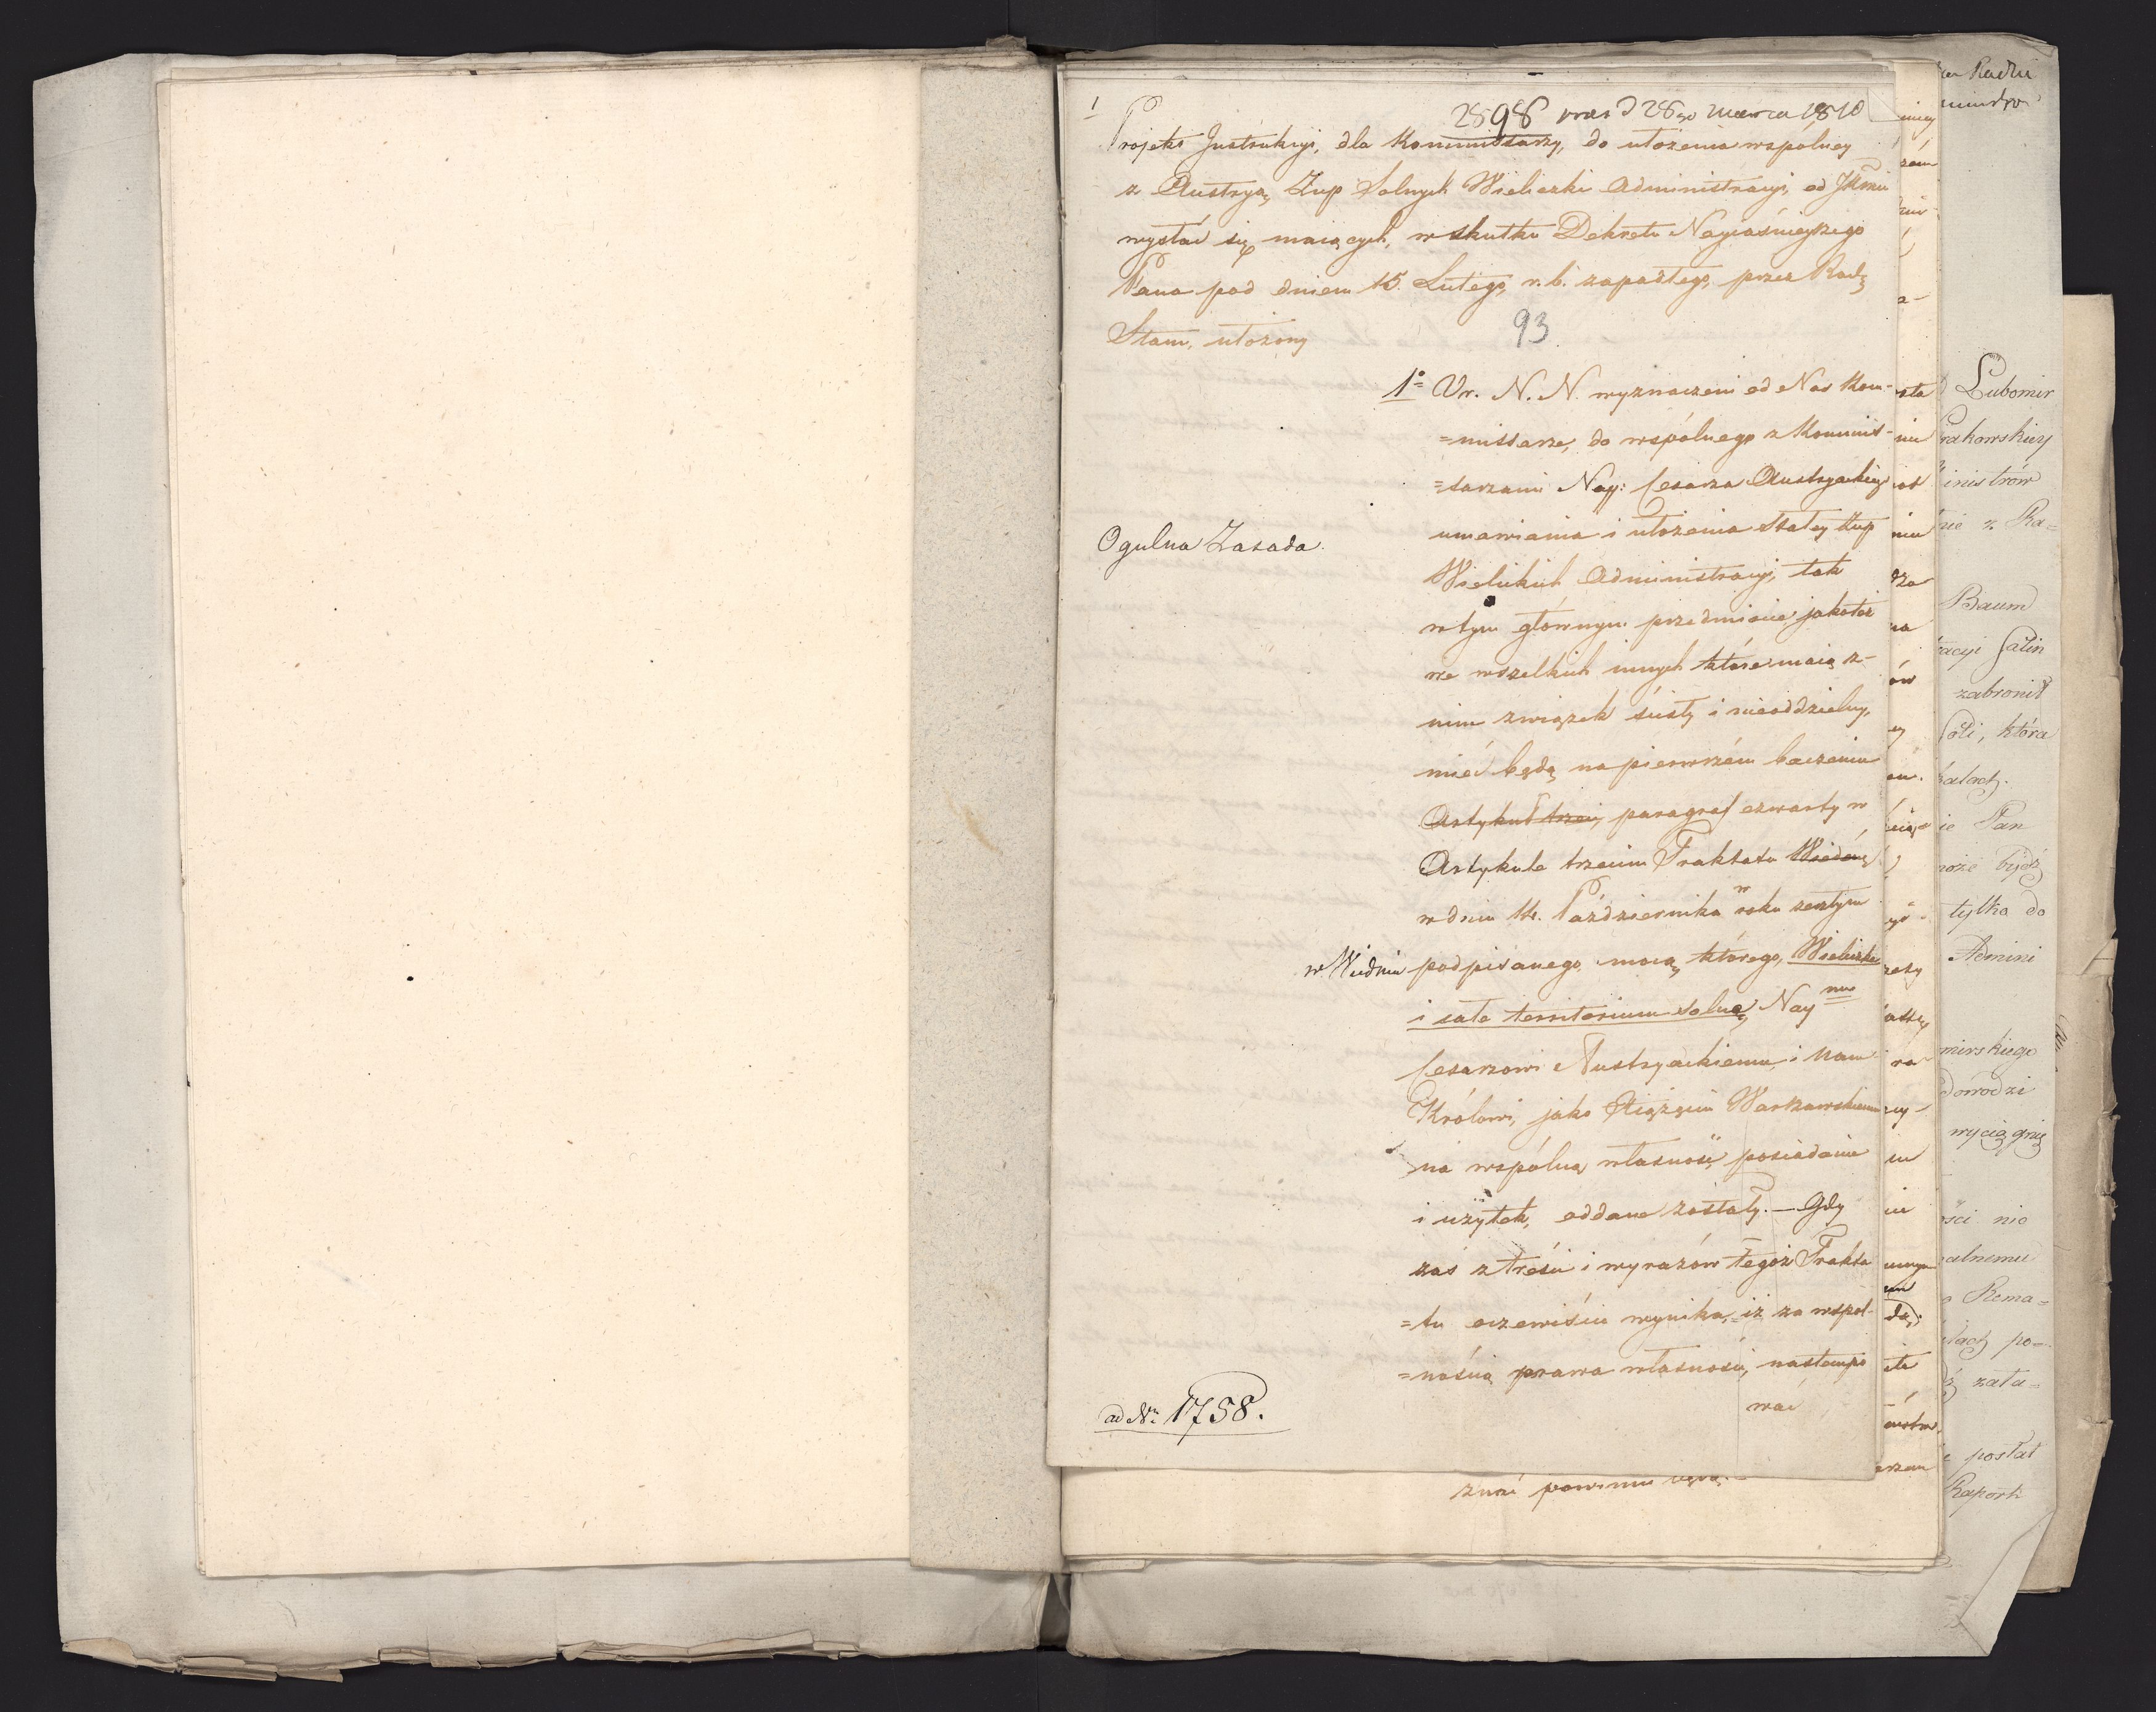 1
2898 pras d 28go Marca 1810
Projekt Jnstrukcyi, dla Kommissarzy, do ułożenia wspólney
z Austryą, Żup Solnych Wieliczki Administracyi, od JKMci
wysłać się maiących, w skutku Dekretu Nayiaśnieyszego
Pana pod dniem 15. Lutego, r. b. zapadłego, przez Radę
Stanu, ułożony
93
1° Ur. N. N. wyznaczeni od Nas Kom-
=missarze, do wspólnego z Kommis-
=sarzami Nay: Cesarza Austryackiego
Ogulna Zasada.
umawiania i ułożenia Stałey Żup
Wielickich Administracyi, tak
w tym głównym przedmiocie, jakoteż
we wszelkich innych które maią z-
nim związek ścisły i nieoddzielny,
mieć będą na pierwszém baczeniu
Artykuł trzeci, paragraf czwarty w
Artykule trzecim Traktatu
w dniu 14. Października w roku zeszłym
w Wiedniu podpisanego, mocą którego, Wieliczka
i całe territorium solne, Nay mu
Cesarzowi Austryackiemu, i Nam
Królowi, jako Xiążęciu Warszawskiemu
na wspólną własność, posiadanie
i użytek, oddane zostały. — Gdy
zaś z treści i wyrazów tegoż Trakta
=tu oczewiście wynika, iż za wspól-
=nością prawa własności, następo
wać
ad Nr. 1758.
znać powinni będą.
Lubomir
Krakowskiey
inistrów
nie z Ra=
Baum
racyi Salin
zabronił
Soli, która
ie Pan
może bydź
tylko do
Admini
mirskiego
dowodzi
wyciągnię
ości nie
alnemu
Rema=
po=
zała=
posłał
Raport